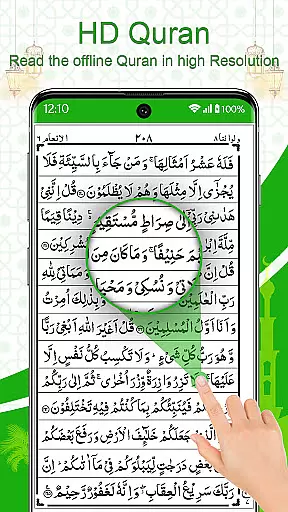 HD Quran
Read the offline Quran in high Resolution
12:10 100%
ولو اننا ٨ ٢٠٨ الانعام ٦
فَلَهٗ عَشْرُ اَمْثَالِهَا ۚ وَ مَنْ جَآءَ بِالسَّيِّئَةِ فَلَا
يُجْزٰٓى اِلَّا مِثْلَهَا وَ هُمْ لَا يُظْلَمُوْنَ قُلْ اِنَّنِیْ
هَدٰىنِیْ رَبِّیْۤ اِلٰى صِرَاطٍ مُّسْتَقِيْمٍ ۚ دِيْنًا قِيَمًا
مِّلَّةَ حَنِيْفًا ۚ وَ مَا كَانَ مِنَ
قُلْ اِنَّ وَ نُسُكِیْ وَ مَحْيَا وَ مَمَاتِیْ لِلّٰهِ
رَبِّ الْعٰلَمِيْنَ وَ بِذٰلِكَ اُمِرْتُ
وَ اَنَا اَوَّلُ الْمُسْلِمِيْنَ قُلْ اَغَيْرَ اللّٰهِ اَبْغِیْ رَبًّا
وَّ هُوَ رَبُّ كُلِّ شَیْءٍ ؕ وَ لَا تَكْسِبُ كُلُّ نَفْسٍ اِلَّا
عَلَيْهَا ۚ تَزِرُ وَازِرَةٌ وِّزْرَ اُخْرٰى ۚ ثُمَّ اِلٰى رَبِّكُمْ
فَيُنَبِّئُكُمْ بِمَا كُنْتُمْ فِيْهِ تَخْتَلِفُوْنَ
جَعَلَكُمْ خَلٰٓئِفَ الْاَرْضِ وَ رَفَعَ بَعْضَكُمْ
بَعْضٍ دَرَجٰتٍ لِّيَبْلُوَكُمْ فِیْ مَاۤ اٰتٰىكُمْ ؕ اِنَّ
رَبَّكَ سَرِيْعُ الْعِقَابِ ۖ وَ اِنَّهٗ لَغَفُوْرٌ رَّحِيْمٌ